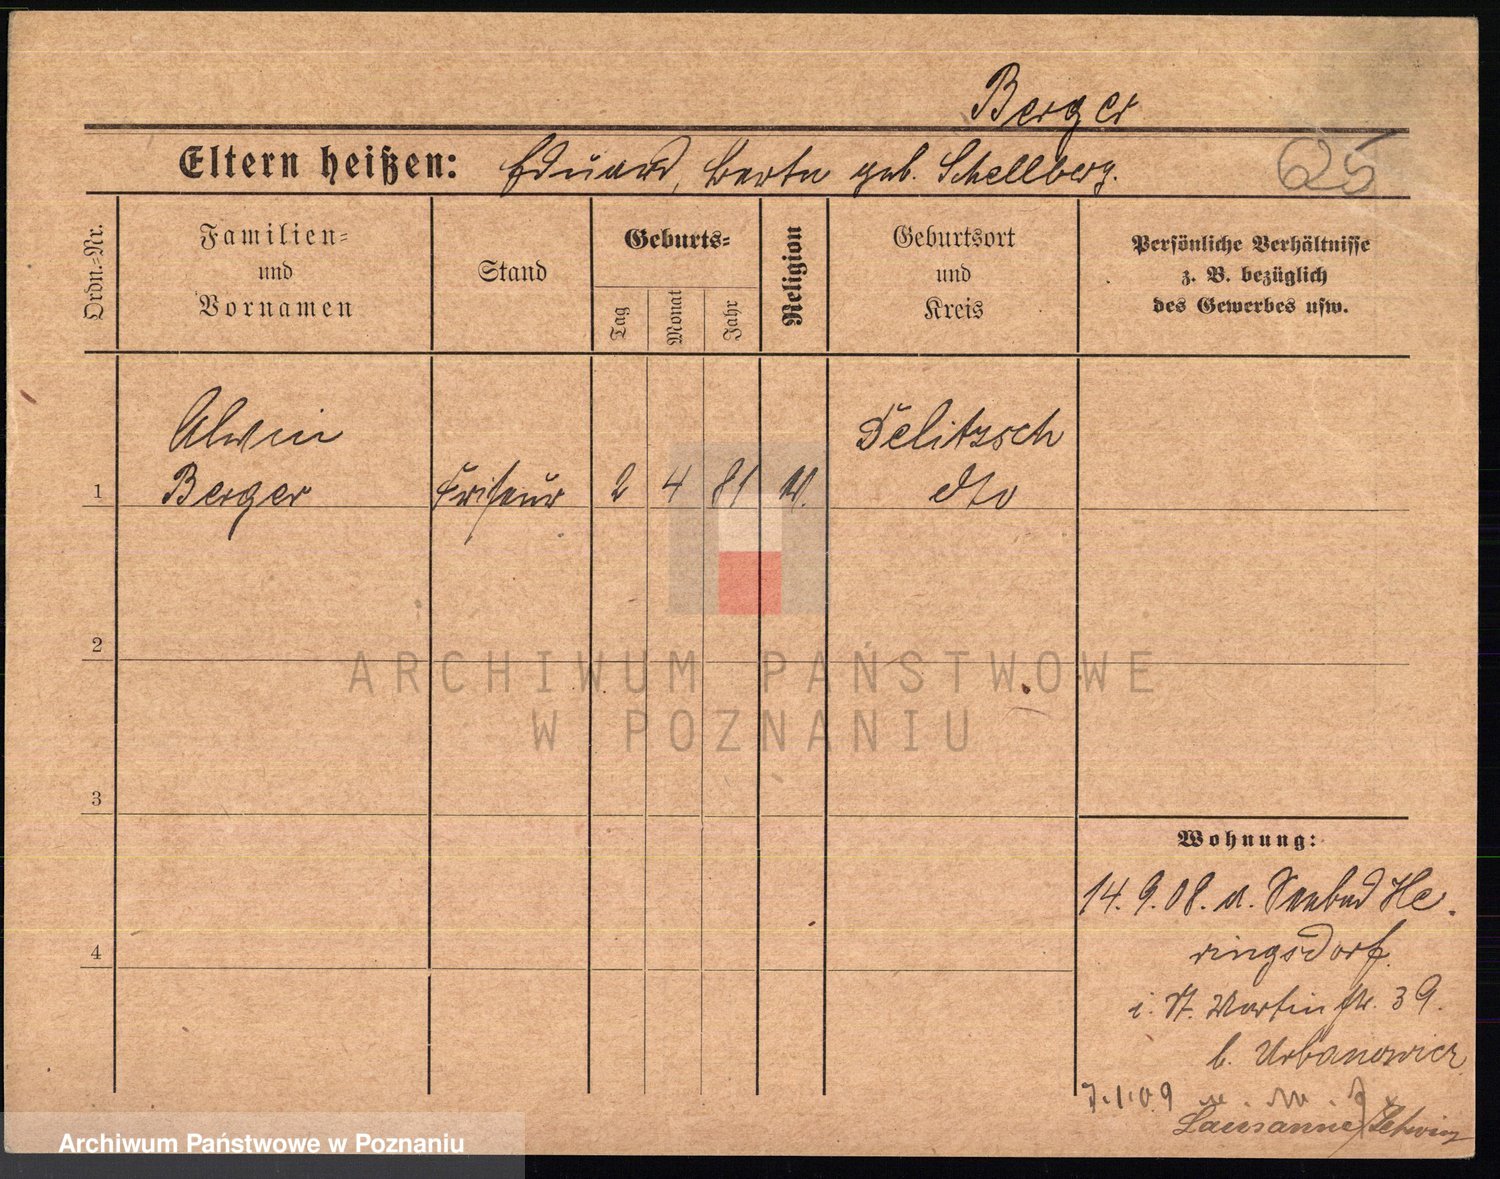 Berger
Eltern heißen: Eduard, Berta geb. Schellberg.
25
Ordn.=Nr.
Familien=
und
Vornamen
Stand
Geburts=
Tag
Monat
Jahr
Religion
Geburtsort
und
Kreis
Persönliche Verhältnisse
z. B. bezüglich
des Gewerbes usw.
Alwin Delitzsch
1 Berger Friseur 2 4 81 dto
2
ARCHIWUM PAŃSTWOWE
W POZNANIU
3
Wohnung:
14.9.08. a. Seebad He
ringsdorf.
4
i. St. Martinstr. 39.
b. Urbanowicz
7.1.09
Lausanne/Schweiz
Archiwum Państwowe w Poznaniu